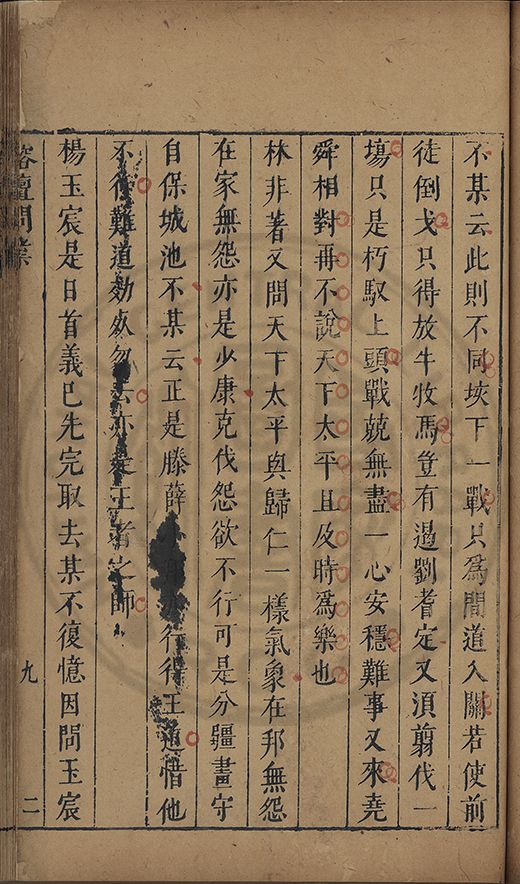 不某云此則不同垓下一戰只爲間道入關若使前
徒倒戈只得放牛牧馬豈有遏劉耆定又須翦伐一
塲只是朽馭上頭戰兢無盡一心安穩難事又來堯
舜相對再不說天下太平且及時爲樂也
林非著又問天下太平與歸仁一樣氣象在邦無怨
在家無怨亦是少康克伐怨欲不行可是分疆畫守
自保城池不某云正是滕薛行得王道惜他
不得難道効死勿去亦是王者之師
楊玉宸是日首義已先完取去某不復憶因問玉宸
榕壇問業
九
二